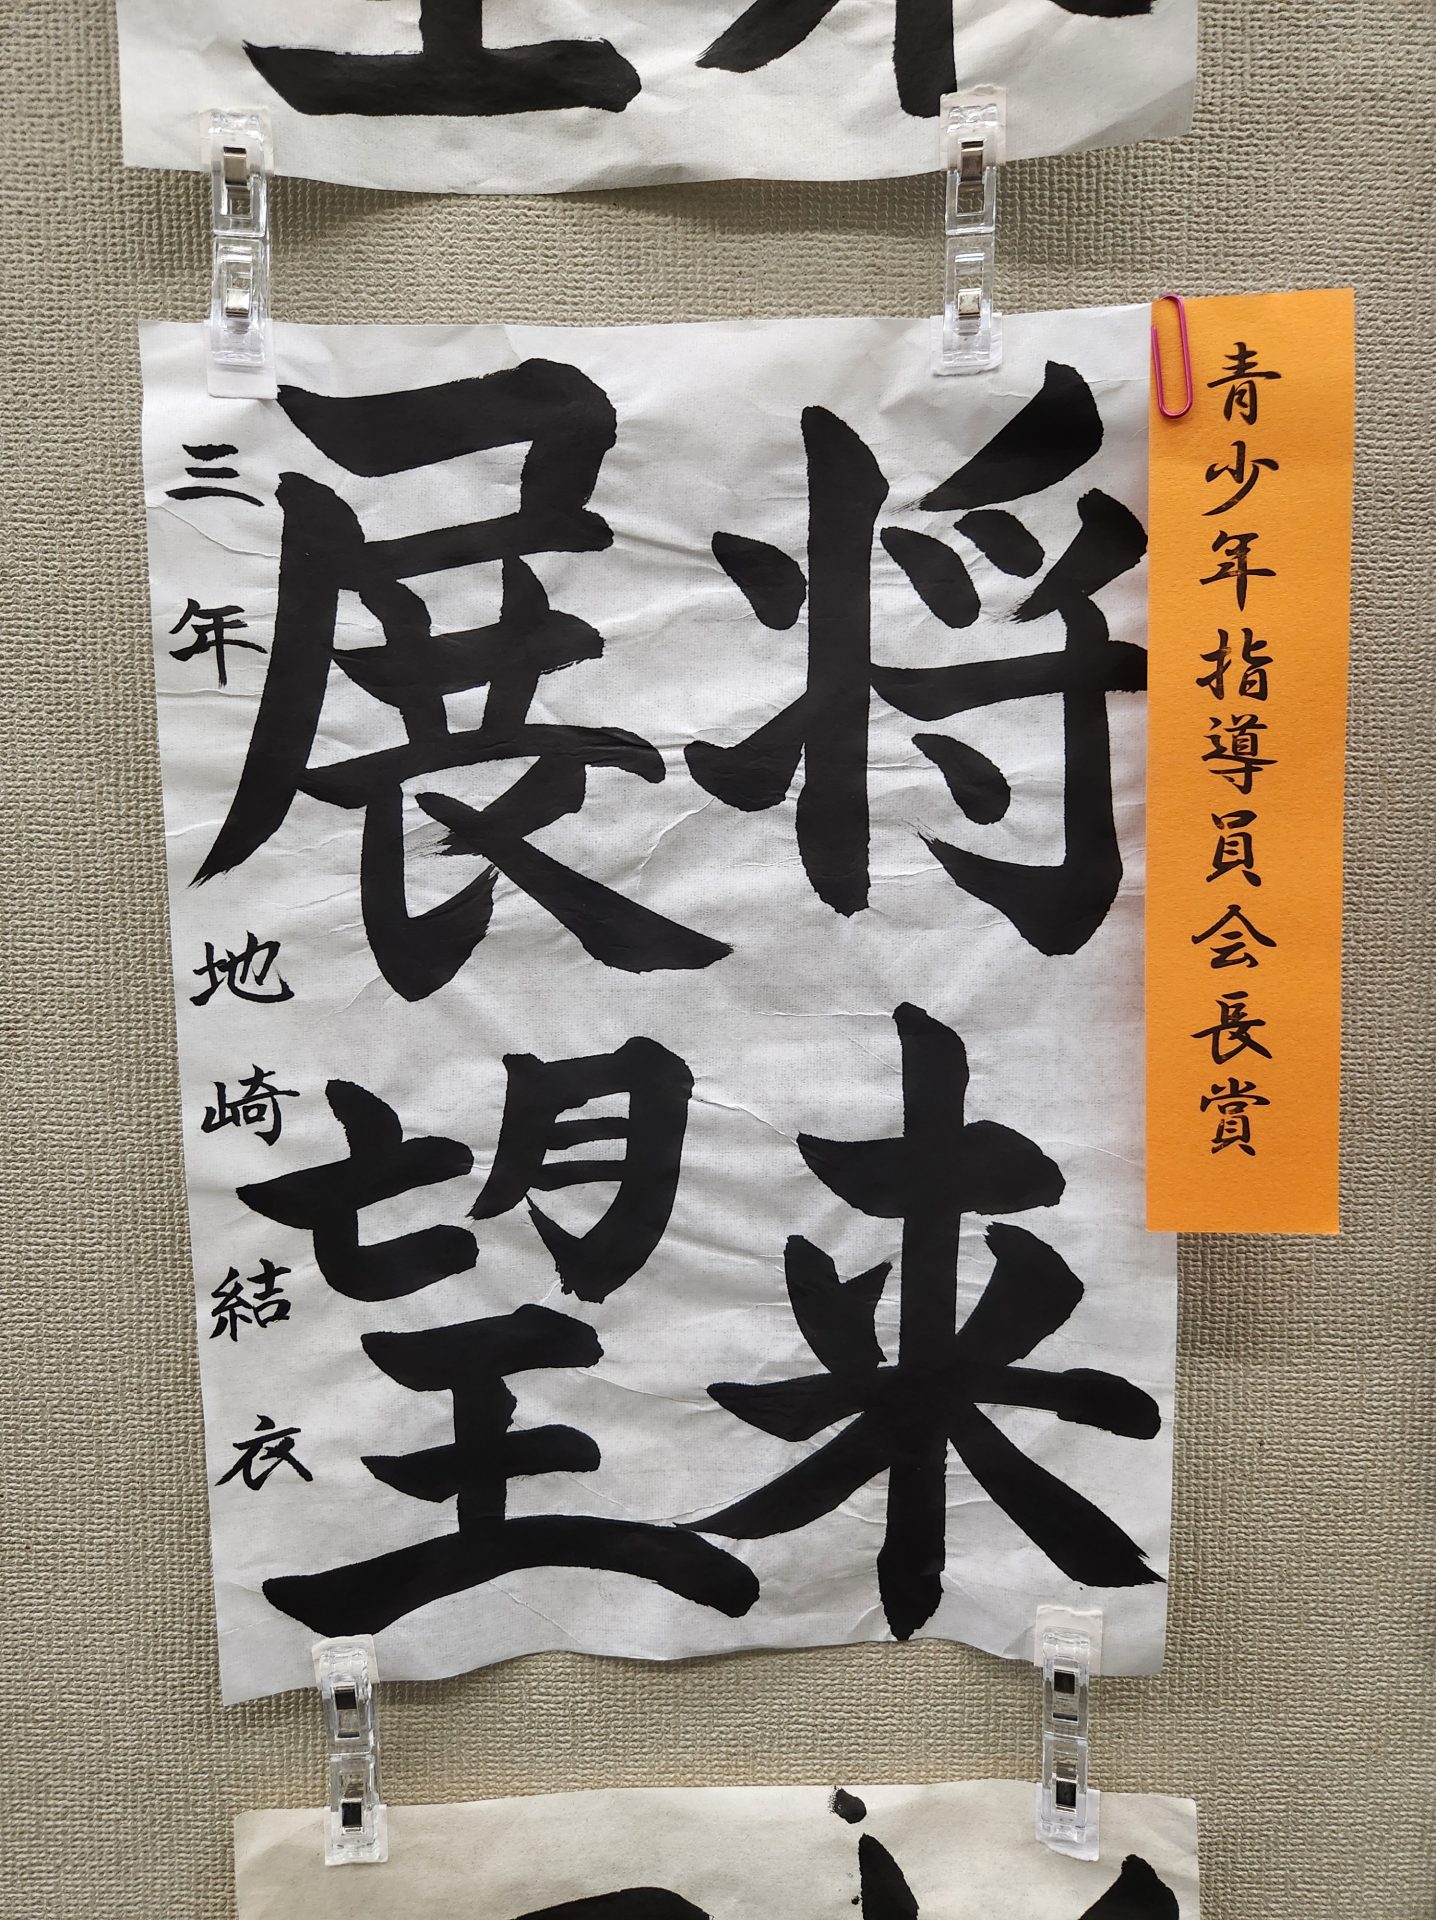 青少年指導員会長賞
将来
展望
三年 地崎結衣